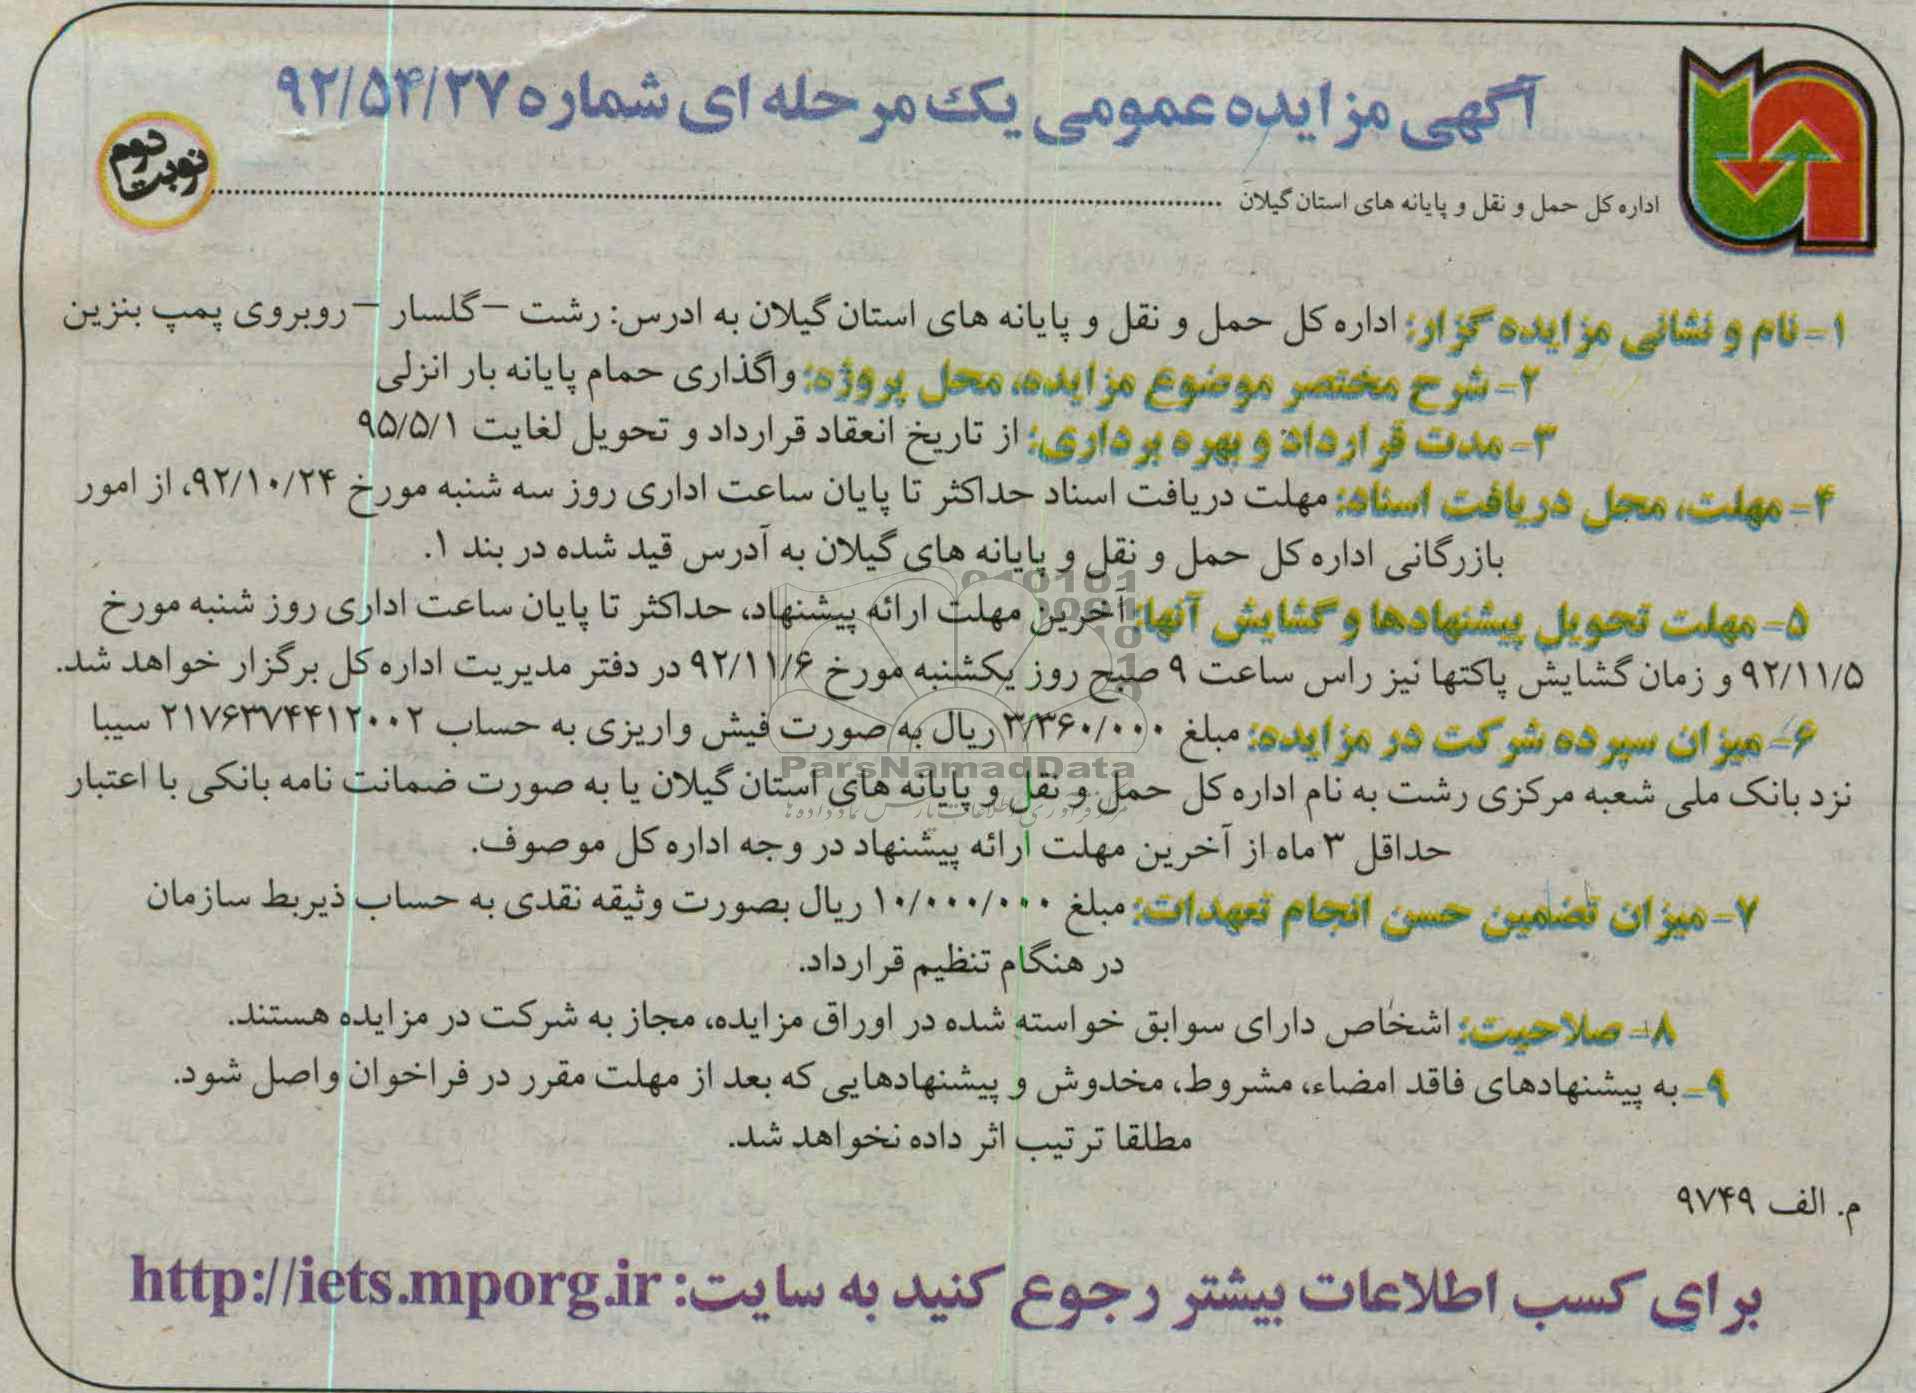 آگهی مزایده عمومی یک مرحله ای شماره ۹۲/۵۴/۲۷
نوبت دوم
اداره کل حمل و نقل و پایانه های استان گیلان
۱- نام و نشانی مزایده گزار: اداره کل حمل و نقل و پایانه های استان گیلان به ادرس: رشت – گلسار – روبروی پمپ بنزین
۲- شرح مختصر موضوع مزایده، محل پروژه: واگذاری حمام پایانه بار انزلی
۳- مدت قرارداد و بهره برداری: از تاریخ انعقاد قرارداد و تحویل لغایت ۹۵/۵/۱
۴- مهلت، محل دریافت اسناد: مهلت دریافت اسناد حداکثر تا پایان ساعت اداری روز سه شنبه مورخ ۹۲/۱۰/۲۴، از امور
بازرگانی اداره کل حمل و نقل و پایانه های گیلان به آدرس قید شده در بند ۱.
۵- مهلت تحویل پیشنهادها و گشایش آنها: آخرین مهلت ارائه پیشنهاد، حداکثر تا پایان ساعت اداری روز شنبه مورخ
۹۲/۱۱/۵ و زمان گشایش پاکتها نیز راس ساعت ۹ صبح روز یکشنبه مورخ ۹۲/۱۱/۶ در دفتر مدیریت اداره کل برگزار خواهد شد.
۶- میزان سپرده شرکت در مزایده: مبلغ ۳/۳۶۰/۰۰۰ ریال به صورت فیش واریزی به حساب ۲۱۷۶۳۷۴۴۱۲۰۰۲ سیبا
نزد بانک ملی شعبه مرکزی رشت به نام اداره کل حمل و نقل و پایانه های استان گیلان یا به صورت ضمانت نامه بانکی با اعتبار
حداقل ۳ ماه از آخرین مهلت ارائه پیشنهاد در وجه اداره کل موصوف.
۷- میزان تضمین حسن انجام تعهدات: مبلغ ۱۰/۰۰۰/۰۰۰ ریال بصورت وثیقه نقدی به حساب ذیربط سازمان
در هنگام تنظیم قرارداد.
۸- صلاحیت: اشخاص دارای سوابق خواسته شده در اوراق مزایده، مجاز به شرکت در مزایده هستند.
۹- به پیشنهادهای فاقد امضاء، مشروط، مخدوش و پیشنهادهایی که بعد از مهلت مقرر در فراخوان واصل شود.
مطلقا ترتیب اثر داده نخواهد شد.
م. الف ۹۷۴۹
برای کسب اطلاعات بیشتر رجوع کنید به سایت: http://iets.mporg.ir
ParsNamadData